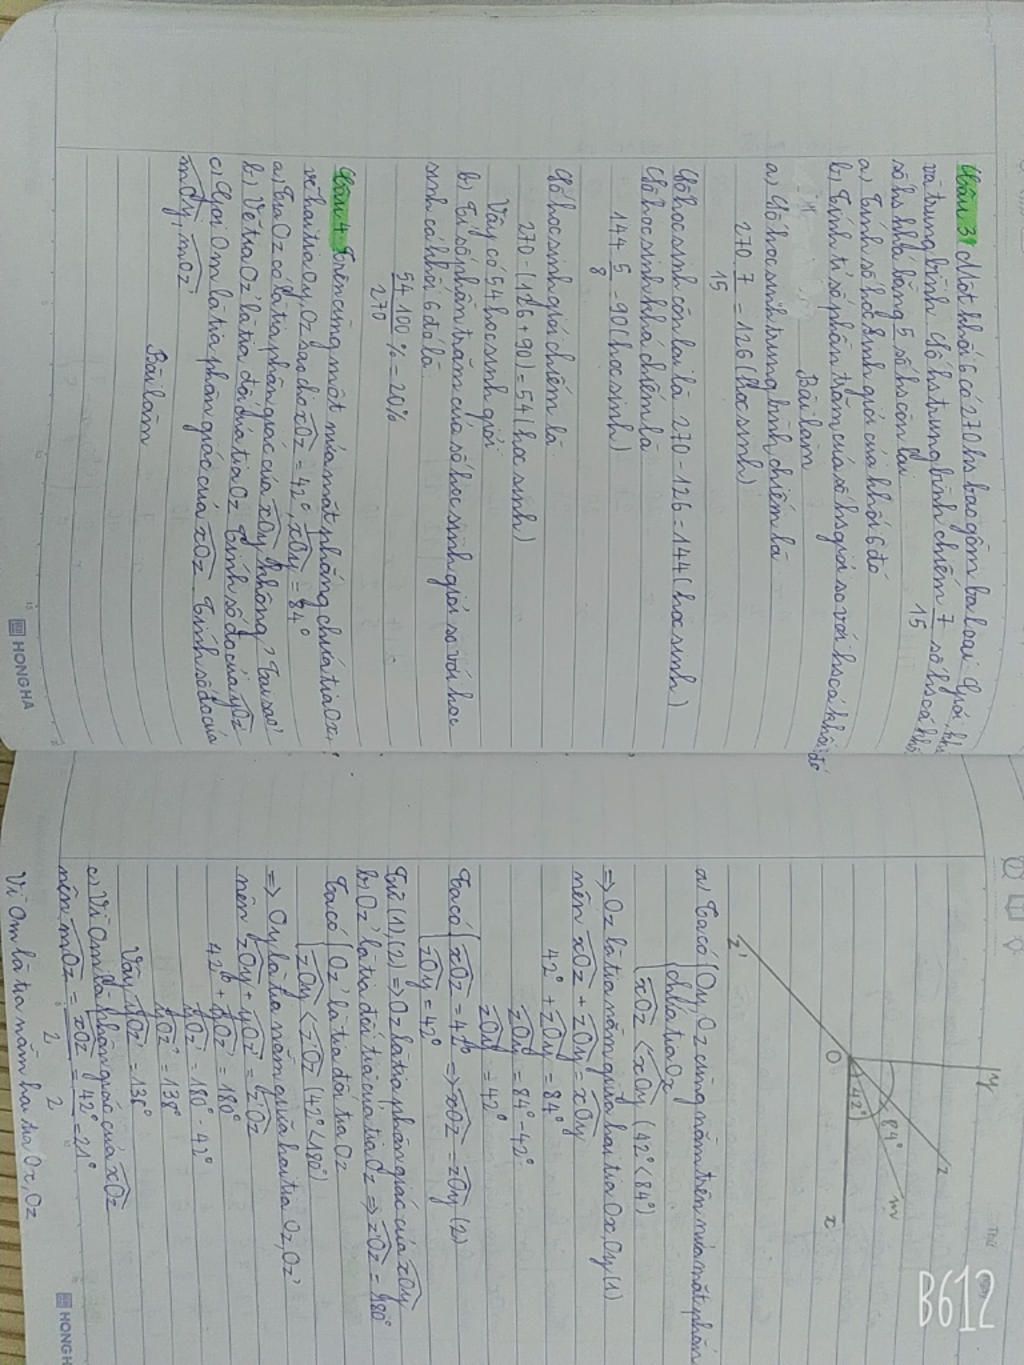 Câu 3) Một khối 6 có 270 hs bao gồm ba loại Giỏi, khá
và trung bình. Số hs trung bình chiếm 7/15 số hs cả khối
số hs khá bằng 5/8 số hs còn lại
a) Tính số học sinh giỏi của khối 6 đó
b) Tính tỉ số phần trăm của số hs giỏi so với hs cả khối đó
Bài làm
a) Số học sinh trung bình chiếm là
270 . 7/15 = 126 (học sinh)
Số học sinh còn lại là 270 - 126 = 144 (học sinh)
Số học sinh khá chiếm là
144 . 5/8 = 90 (học sinh)
Số học sinh giỏi chiếm là
270 - (126 + 90) = 54 (học sinh)
Vậy có 54 học sinh giỏi
b) Tỉ số phần trăm của số học sinh giỏi so với học
sinh cả khối 6 đó là
54.100/270 % = 20%
Câu 4: Trên cùng một nửa mặt phẳng chứa tia Ox,
vẽ hai tia Oy, Oz sao cho xOz = 42°, xOy = 84°
a) Tia Oz có là tia phân giác của xOy không? Tại sao?
b) Vẽ tia Oz' là tia đối của tia Oz. Tính số đo của yOz'
c) Gọi Om là tia phân giác của xOz. Tính số đo của
mOy, mOz'
Bài làm
HONG HA
Thứ
y
z
84°
m
42°
O
x
z'
a) Ta có { Oy, Oz cùng nằm trên nửa mặt phẳn
chứa tia Ox
xOz < xOy (42° < 84°)
=> Oz là tia nằm giữa hai tia Ox, Oy (1)
nên xOz + zOy = xOy
42° + zOy = 84°
zOy = 84° - 42°
zOy = 42°
Ta có { xOz = 42° => xOz = zOy (2)
zOy = 42°
Từ (1), (2) => Oz là tia phân giác của xOy
b) Oz' là tia đối tia của tia Oz => zOz' = 180°
Ta có { Oz' là tia đối tia Oz
zOy < zOz' (42° < 180°)
=> Oy là tia nằm giữa hai tia Oz, Oz'
nên zOy + yOz' = zOz'
42° + yOz' = 180°
yOz' = 180° - 42°
yOz' = 138°
Vậy yOz' = 138°
c) Vì Om là phân giác của xOz
nên mOz = xOz/2 = 42°/2 = 21°
Vì Om là tia nằm hai tia Ox, Oz
HONG H
B612